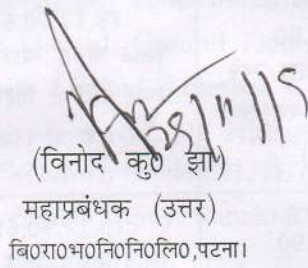 (विनोद कु० झा)
महाप्रबंधक (उत्तर)
बि०रा०भ०नि०नि०लि०,पटना।